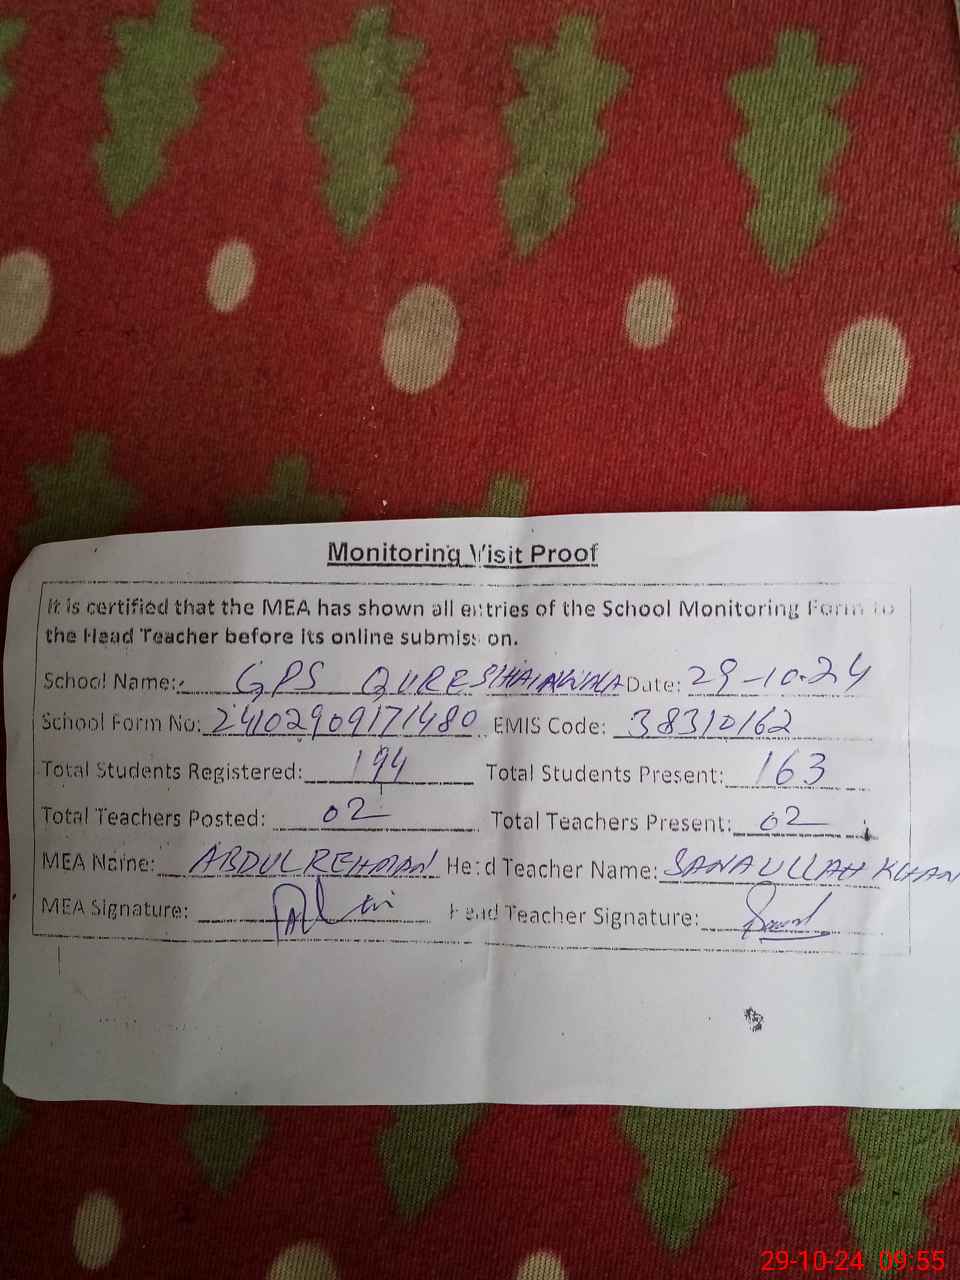 Monitoring Visit Proof
It is certified that the MEA has shown all entries of the School Monitoring Form to
the Head Teacher before its online submission.
School Name: GPS QURESHAIANWALA Date: 29-10-24
School Form No: 2410290917 1480 EMIS Code: 38310162
Total Students Registered: 194 Total Students Present: 163
Total Teachers Posted: 02 Total Teachers Present: 02
MEA Name: ABDUL REHMAN Head Teacher Name: SANA ULLAH KHAN
MEA Signature: Head Teacher Signature:
29-10-24 09:55